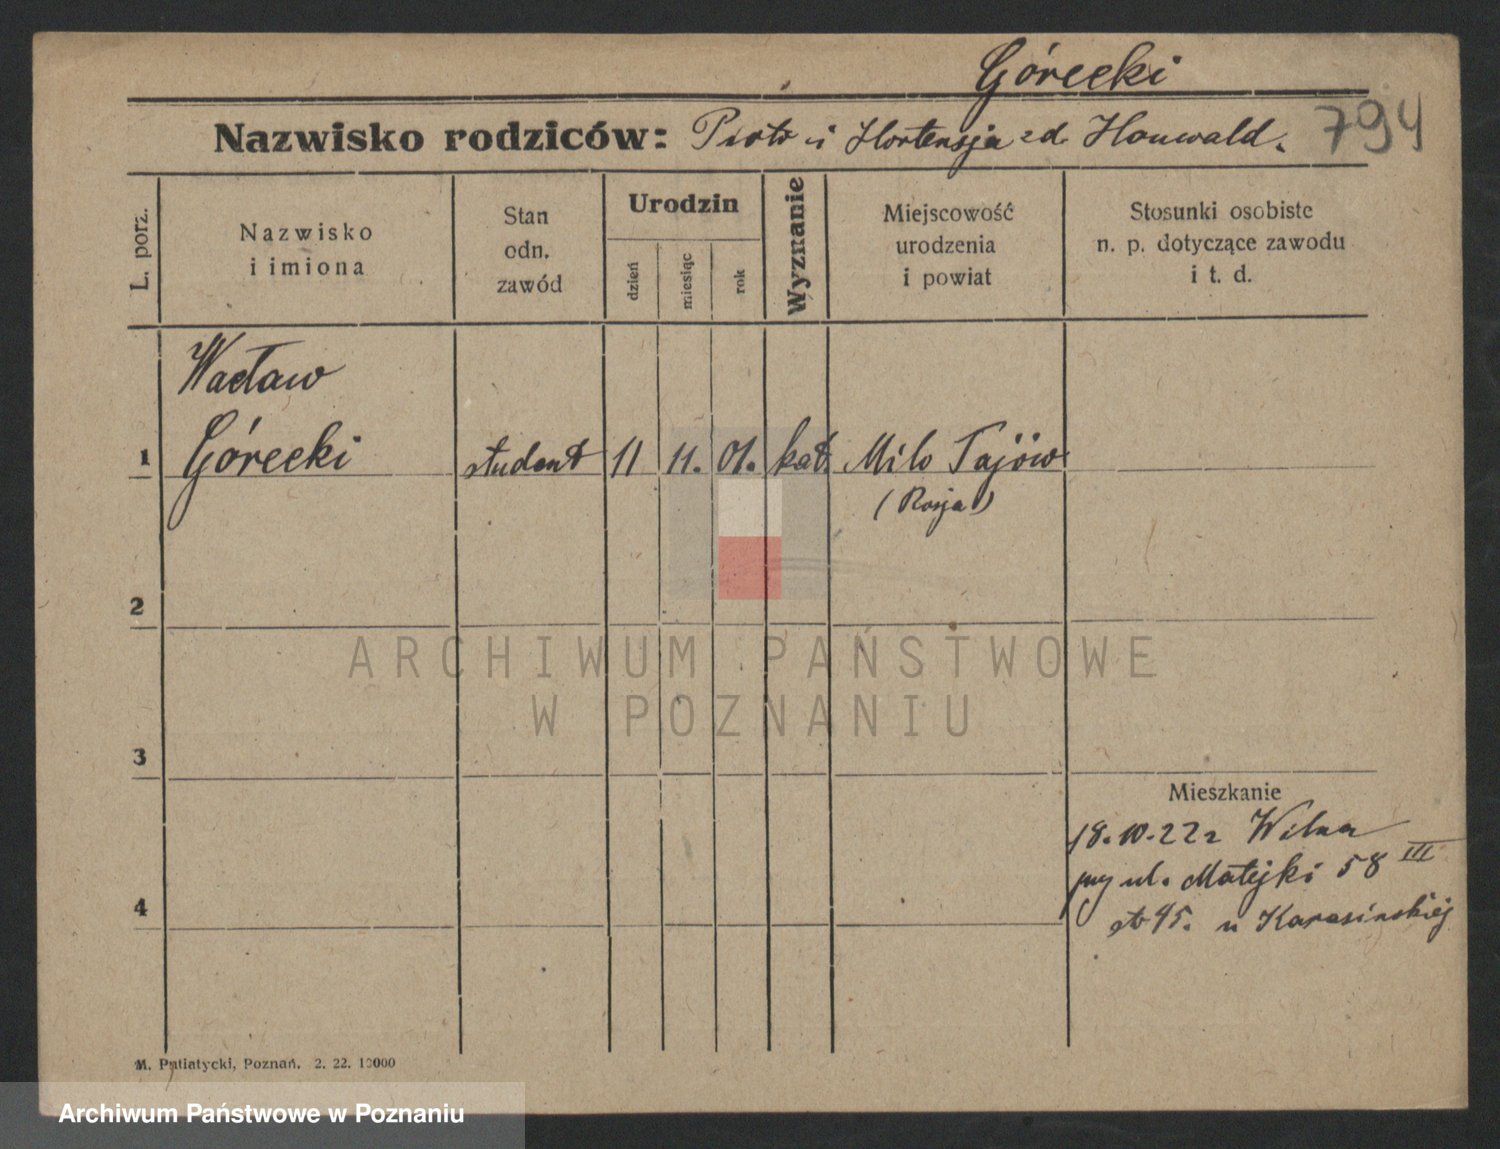 Górecki
Nazwisko rodziców: Piotr i Hortensja zd. Houwald. 794
L. porz.
Nazwisko
i imiona
Stan
odn.
zawód
Urodzin
dzień
miesiąc
rok
Wyznanie
Miejscowość
urodzenia
i powiat
Stosunki osobiste
n. p. dotyczące zawodu
i t. d.
Wacław
1 Górecki student 11 11. 01. kat. Milo Tajów
(Rosja)
2
ARCHIWUM PAŃSTWOWE
W POZNANIU
3
Mieszkanie
18.10.22 r Wilna
przy ul. Matejki 58 III
4
u Karasińskiej
M. Putiatycki, Poznań. 2. 22. 10000
Archiwum Państwowe w Poznaniu